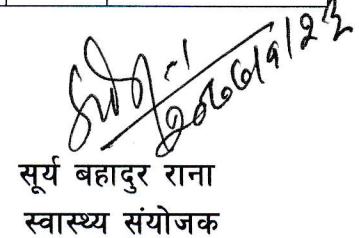 सूर्य बहादुर राना
स्वास्थ्य संयोजक